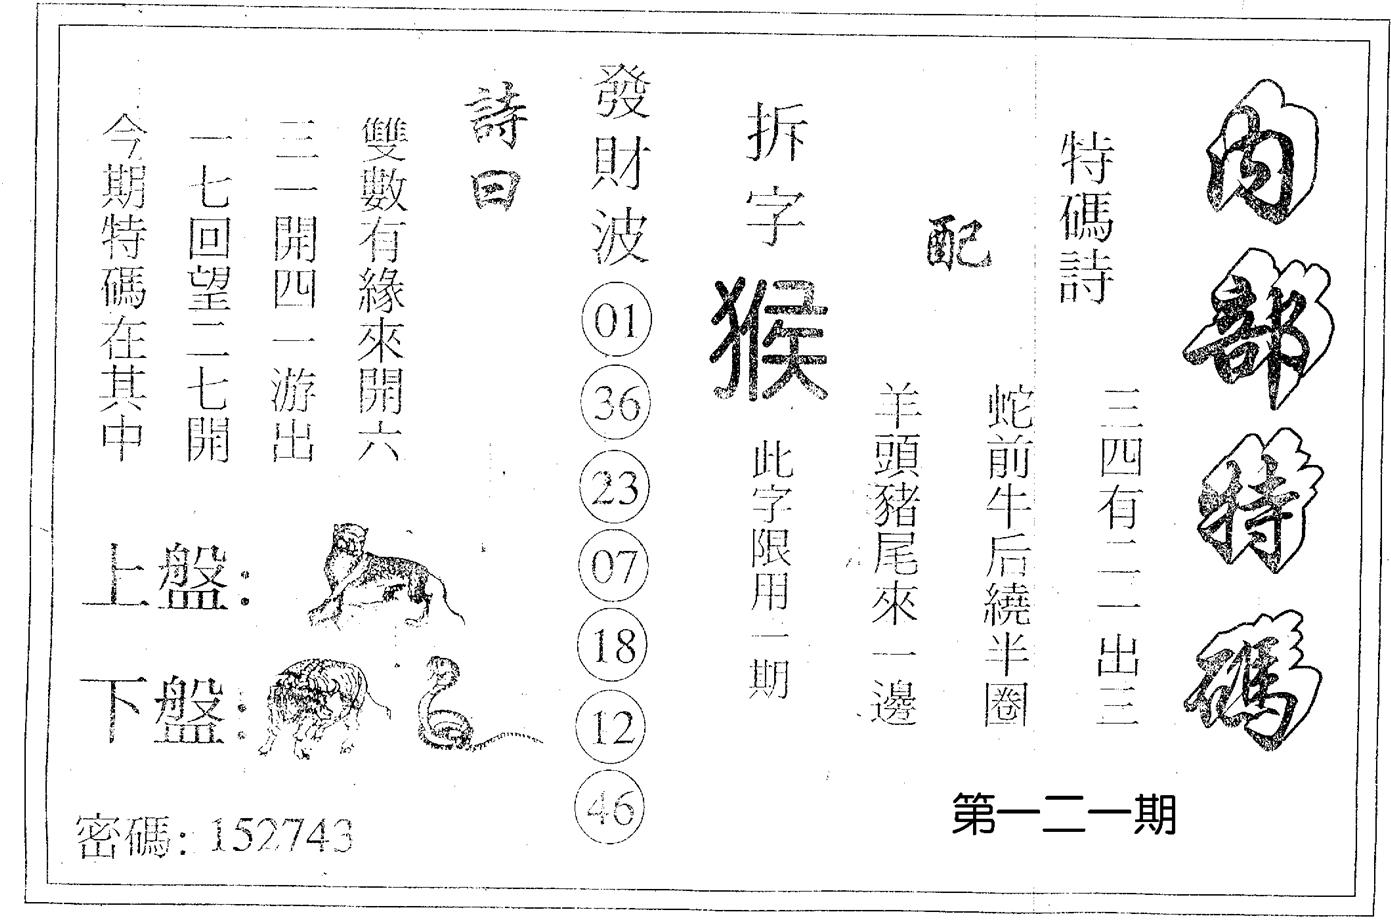 內部特碼
特碼詩
三四有二一出三
蛇前牛后繞半圈
羊頭豬尾來一邊
配
第一二一期
拆字
猴
此字限用一期
發財波
01
36
23
07
18
12
46
詩曰
雙數有緣來開六
三一開四一游出
一七回望二七開
今期特碼在其中
上盤:
下盤:
密碼: 152743